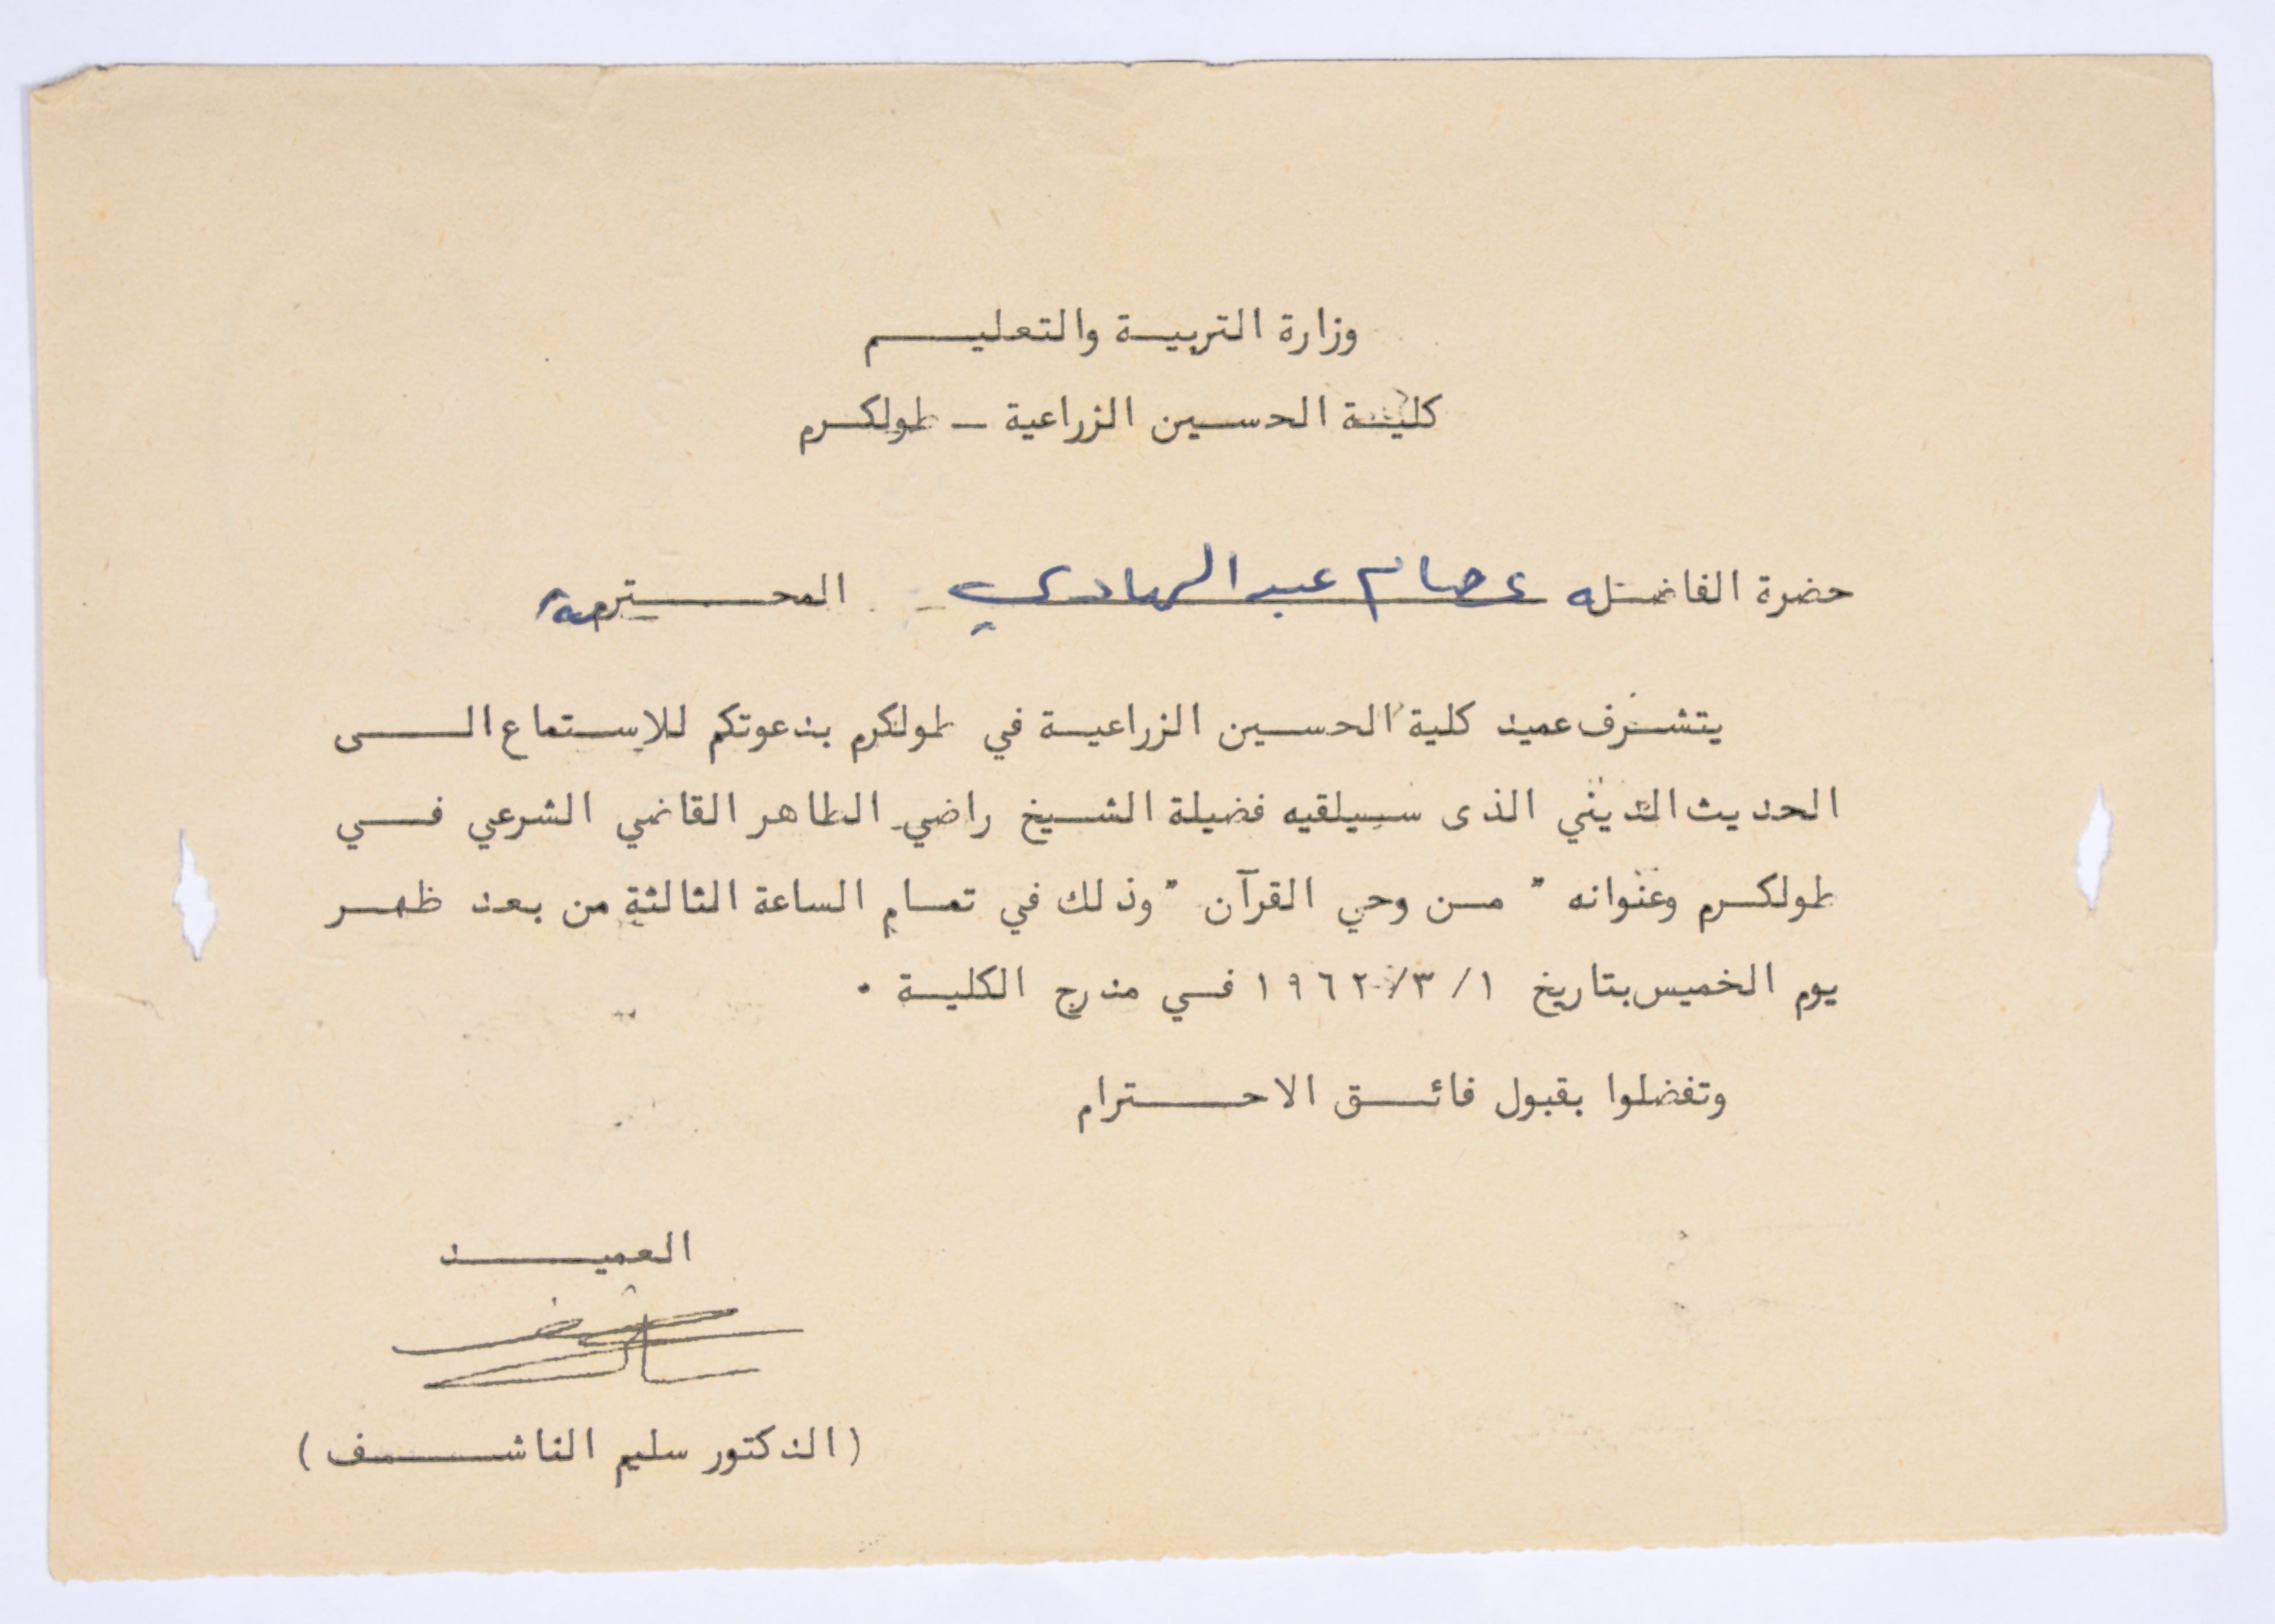 وزارة التربية والتعليم
كلية الحسين الزراعية - طولكرم
حضرة الفاضله عصام عبد الهادي المحترمة
يتشرف عميد كلية الحسين الزراعية في طولكرم بدعوتكم للاستماع الى
الحديث الديني الذى سيلقيه فضيلة الشيخ راضي الطاهر القاضي الشرعي في
طولكرم وعنوانه " من وحي القرآن " وذلك في تمام الساعة الثالثة من بعد ظهر
يوم الخميس بتاريخ ١/ ٣/ ١٩٦٢ في مدرج الكلية .
وتفضلوا بقبول فائق الاحترام
العميد
(الدكتور سليم الناشف)